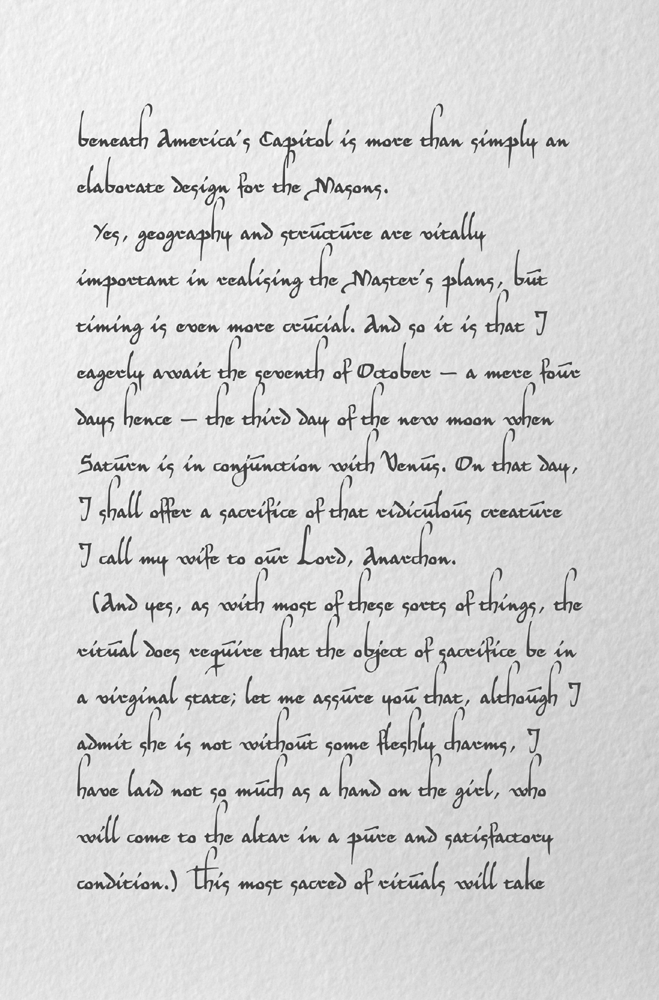 beneath America's Capitol is more than simply an
elaborate design for the Masons.
Yes, geography and structure are vitally
important in realising the Master's plans, but
timing is even more crucial. And so it is that I
eagerly await the seventh of October — a mere four
days hence — the third day of the new moon when
Saturn is in conjunction with Venus. On that day,
I shall offer a sacrifice of that ridiculous creature
I call my wife to our Lord, Anarchon.
(And yes, as with most of these sorts of things, the
ritual does require that the object of sacrifice be in
a virginal state; let me assure you that, although I
admit she is not without some fleshly charms, I
have laid not so much as a hand on the girl, who
will come to the altar in a pure and satisfactory
condition.) This most sacred of rituals will take